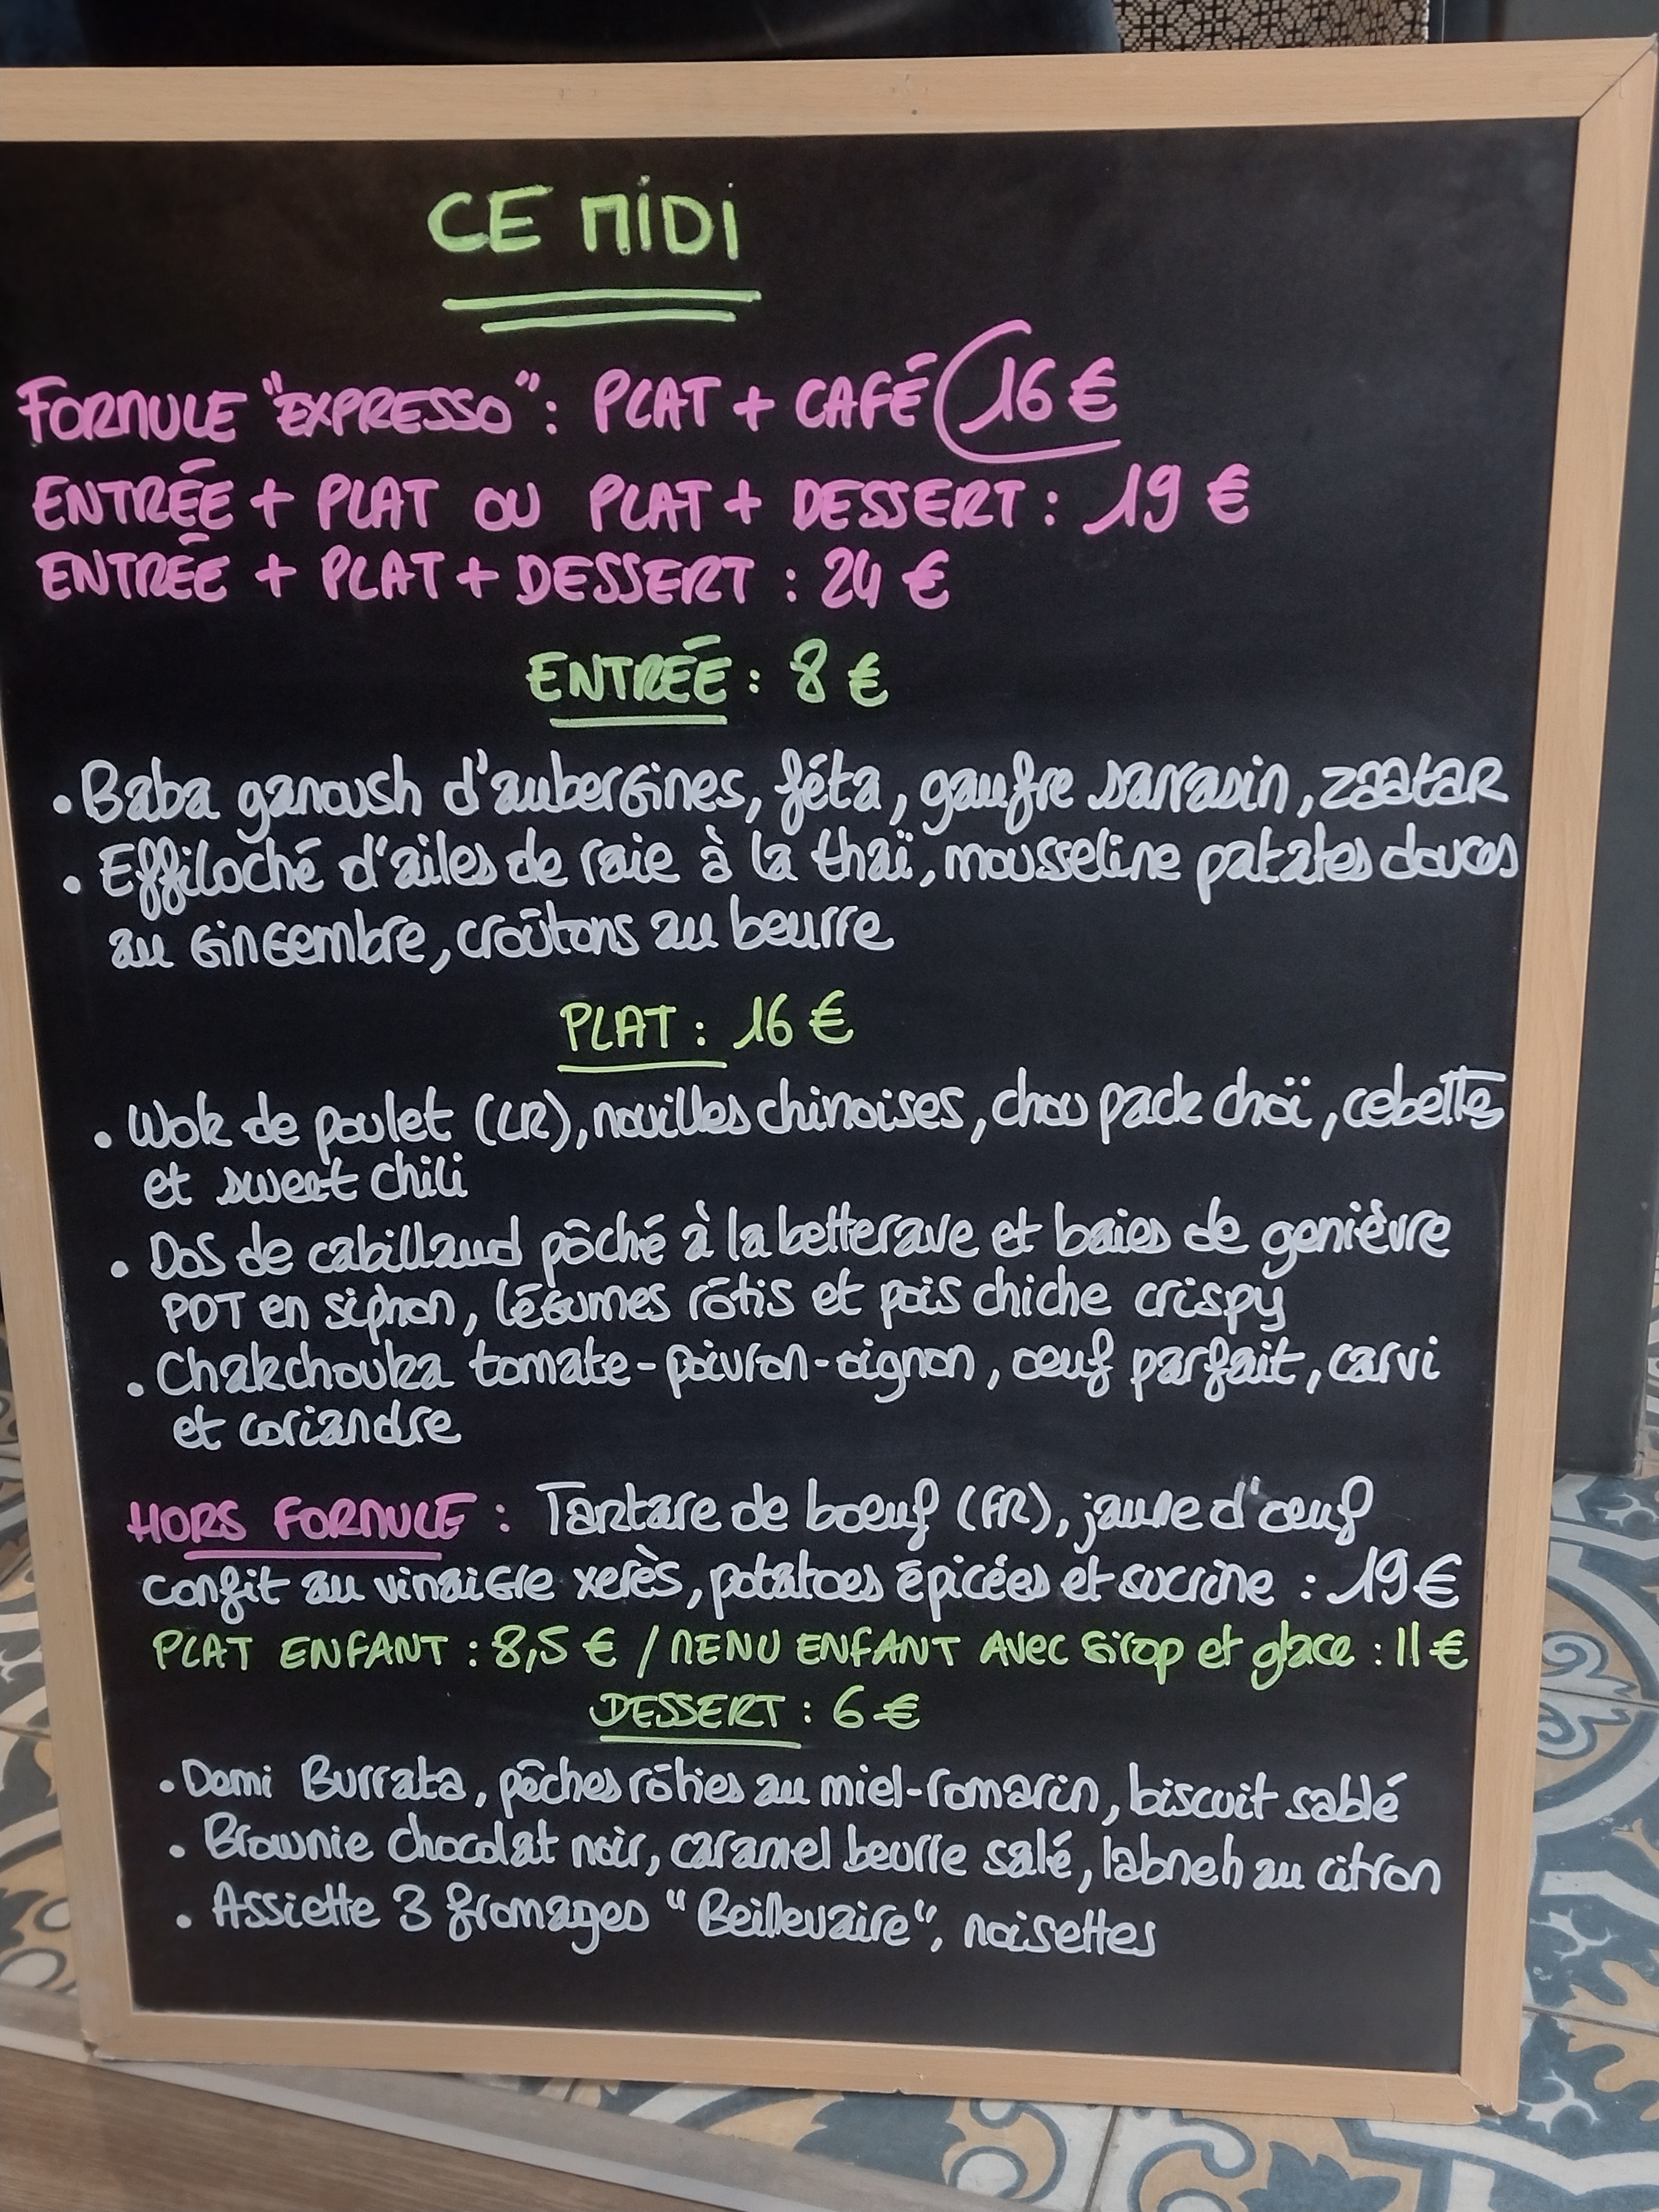 CE MIDI
FORMULE "EXPRESSO" : PLAT + CAFÉ 16 €
ENTRÉE + PLAT OU PLAT + DESSERT : 19 €
ENTRÉE + PLAT + DESSERT : 24 €
ENTRÉE : 8 €
• Baba ganoush d'aubergines, féta, gaufre sarrasin, zaatar
• Effiloché d'ailes de raie à la thaï, mousseline patates douces
au gingembre, croûtons au beurre
PLAT : 16 €
• Wok de poulet (LR), nouilles chinoises, chou pack choï, cebette
et sweet chili
• Dos de cabillaud pôché à la betterave et baies de genièvre
PDT en siphon, légumes rôtis et pois chiche crispy
• Chakchouka tomate-poivron-oignon, oeuf parfait, carvi
et coriandre
HORS FORMULE : Tartare de boeuf (FR), jaune d'oeuf
confit au vinaigre xerès, potatoes épicées et sucrine : 19 €
PLAT ENFANT : 8,5 € / MENU ENFANT Avec Sirop et glace : 11 €
DESSERT : 6 €
• Demi Burrata, pêches rôties au miel-romarin, biscuit sablé
• Brownie chocolat noir, caramel beurre salé, labneh au citron
• Assiette 3 fromages "Beillevaire", noisettes